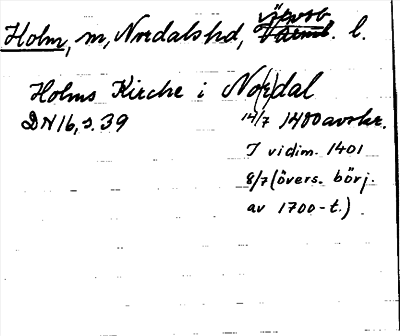 Holm, m, Nordalshd, Älvsb. l.
Holms Kirche i No(r)dal
DN 16, s. 39 14/7 1400 avskr.
I vidim. 1401
8/7 (övers. börj.
av 1700-t.)